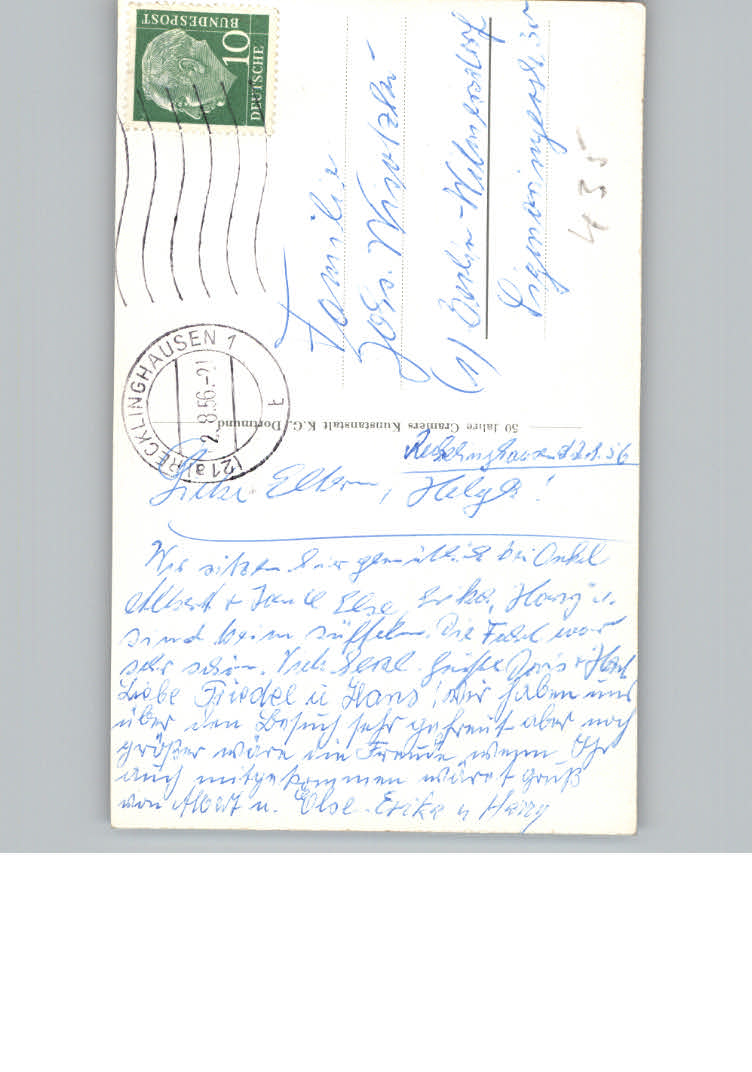 DEUTSCHE
BUNDESPOST
10
(21a) RECKLINGHAUSEN 1
2.8.56.-21
t
Familie
Johs.
(1) Berlin-Wilmersdorf
Sigmaringerstr
435
50 Jahre Cramers Kunstanstalt K.G., Dortmund
Recklinghausen d 2.8.56
Liebe Eltern, Helga!
Wir sitzen hier gemütlich bei Onkel
Albert + Tante Else, Erika, Harry u.
sind beim süffeln. Die Fahrt war
sehr schön. Viele Grüße Doris +
Liebe Friedel u Hans! Wir haben uns
über den Besuch sehr gefreut aber noch
größer wäre die Freude, wenn Ihr
auch mitgekommen wäret Gruß
von Albert u. Else. Erika u Harry